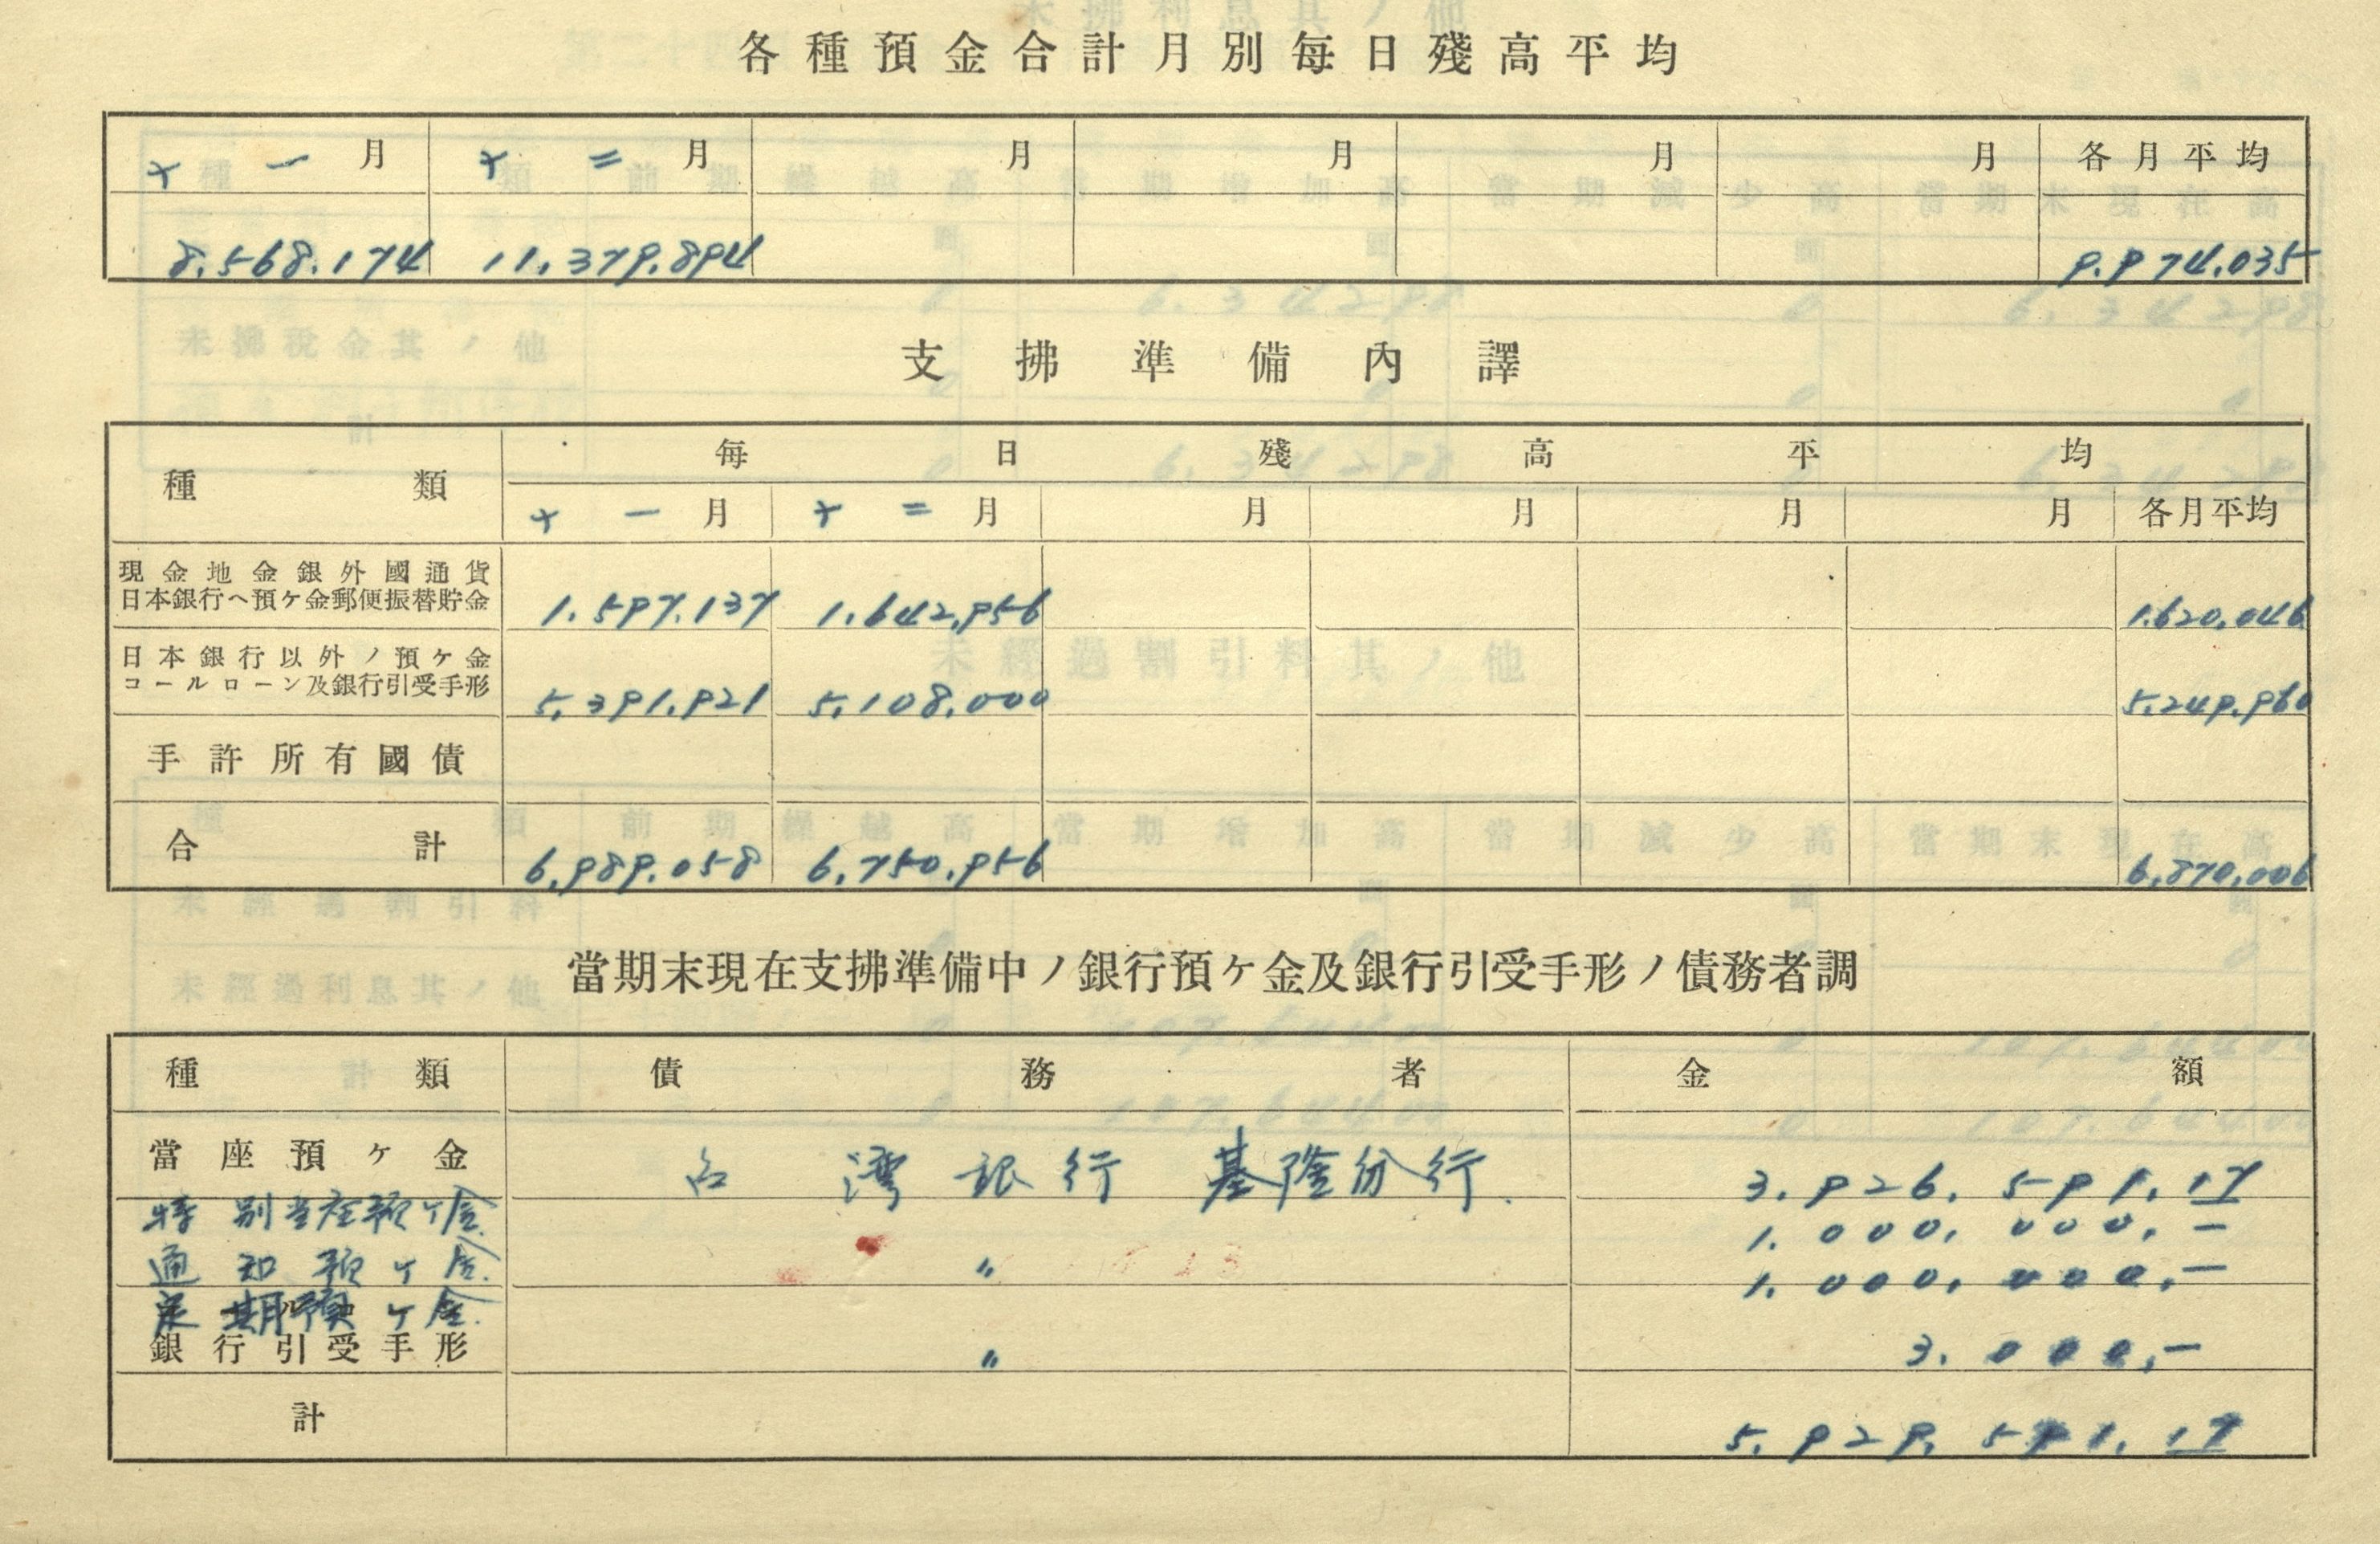 各種預金合計月別每日殘高平均
十一月 十二月 月 月 月 月 各月平均
8.568.174 11.379.894 9.974.035
支拂準備內譯
種類 每日殘高平均
十一月 十二月 月 月 月 月 各月平均
現金地金銀外國通貨
日本銀行へ預ケ金郵便振替貯金 1.597.137 1.642.956 1.620.046
日本銀行以外ノ預ケ金
コールローン及銀行引受手形 5.391.921 5.108.000 5.249.960
手許所有國債
合計 6.989.058 6.750.956 6.870.006
當期末現在支拂準備中ノ銀行預ケ金及銀行引受手形ノ債務者調
種類 債務者 金額
當座預ケ金 台湾銀行 基隆分行. 3.926.591.17
特別当座預ケ金. 1.000.000.—
通知預ケ金. 〃 1.000.000.—
定期預ケ金.
銀行引受手形 〃 3.000.—
計 5.929.591.17